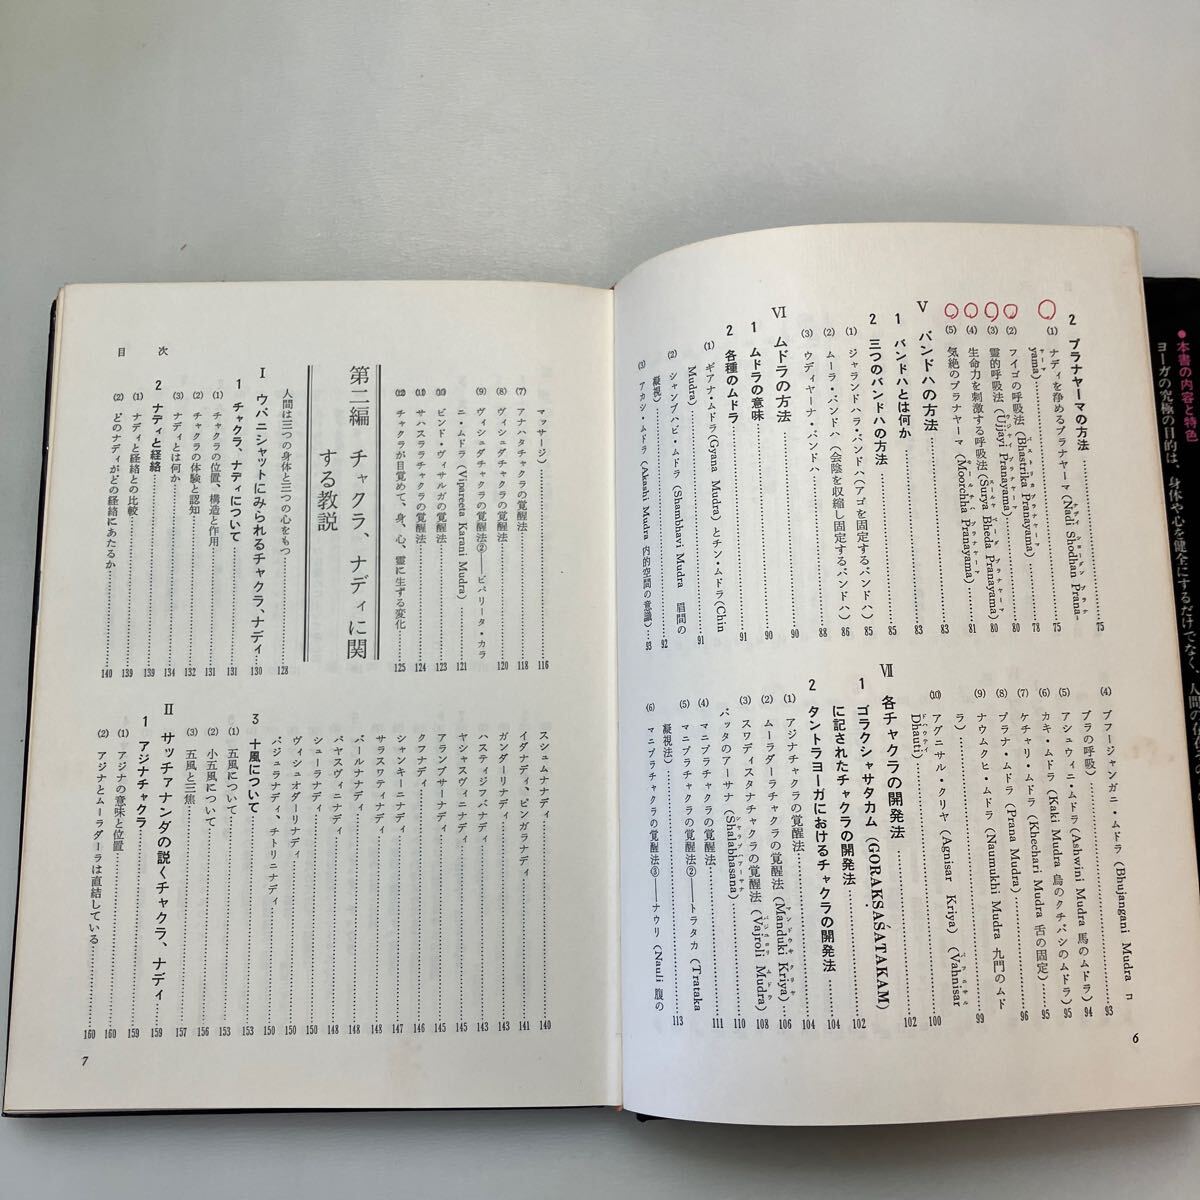 2 プラナヤーマの方法 75
(1) ナディを浄めるプラナヤーマ (Nadi Shodhan Prana-
yama) 75
(2) フイゴの呼吸法 (Bhastrika Pranayama) 78
(3) 霊的呼吸法 (Ujjayi Pranayama) 80
(4) 生命力を刺激する呼吸法 (Surya Bheda Pranayama) 80
(5) 気絶のプラナヤーマ (Moorchha Pranayama) 81
V バンドハの方法 83
1 バンドハとは何か 83
2 三つのバンドハの方法 85
(1) ジャランドハラ・バンドハ (アゴを固定するバンドハ) 85
(2) ムーラ・バンドハ (会陰を収縮し固定するバンドハ) 86
(3) ウディヤーナ・バンドハ 88
VI ムドラの方法 90
1 ムドラの意味 90
2 各種のムドラ 91
(1) ギアナ・ムドラ (Gyana Mudra) とチン・ムドラ (Chin
Mudra) 91
(2) シャンブハビ・ムドラ (Shambhavi Mudra 眉間の
凝視) 92
(3) アカシ・ムドラ (Akashi Mudra 内的空間の意識) 93
(4) ブフージャンガニ・ムドラ (Bhujangani Mudra コ
ブラの呼吸) 93
(5) アシュウィニ・ムドラ (Ashwini Mudra 馬のムドラ) 94
(6) カキ・ムドラ (Kaki Mudra 鳥のクチバシのムドラ) 95
(7) ケチャリ・ムドラ (Khechari Mudra 舌の固定) 95
(8) プラナ・ムドラ (Prana Mudra) 96
(9) ナウムクヒ・ムドラ (Naumukhi Mudra 九門のムド
ラ) 99
(10) アグニサル・クリヤ (Agnisar Kriya) (Vahnisar
Dhauti) 100
VII 各チャクラの開発法 102
1 ゴラクシャサタカム (GORAKSAŚATAKAM)
に記されたチャクラの開発法 102
2 タントラヨーガにおけるチャクラの開発法 104
(1) アジナチャクラの覚醒法 104
(2) ムーラダーラチャクラの覚醒法 (Manduki Kriya) 106
(3) スワディスタナチャクラの覚醒法 (Vajroli Mudra) 108
バッタのアーサナ (Shalabhasana) 110
(4) マニプラチャクラの覚醒法 111
(5) マニプラチャクラの覚醒法②――トラタカ (Trataka
凝視法) 113
(6) マニプラチャクラの覚醒法③――ナウリ (Nauli 腹の
6
マッサージ) 116
(7) アナハタチャクラの覚醒法 118
(8) ヴィシュダチャクラの覚醒法 120
(9) ヴィシュダチャクラの覚醒法②――ビパリータ・カラ
ニ・ムドラ (Vipareeta Karani Mudra) 121
(10) ビンド・ヴィサルガの覚醒法 123
(11) サハスララチャクラの覚醒法 124
(12) チャクラが目覚めて、身、心、霊に生ずる変化 125
第二編 チャクラ、ナディに関
する教説
人間は三つの身体と三つの心をもつ 128
I ウパニシャットにみられるチャクラ、ナディ 130
1 チャクラ、ナディについて 131
(1) チャクラの位置、構造と作用 131
(2) チャクラの体験と認知 132
(3) ナディとは何か 134
2 ナディと経絡 139
(1) ナディと経絡との比較 139
(2) どのナディがどの経絡にあたるか 140
スシュムナナディ 140
イダナディ、ピンガラナディ 141
ガンダーリナディ 143
ハスティジフバナディ 143
ヤシャスヴィニナディ 145
アランブサーナディ 145
クフナディ 146
シャンキーニナディ 147
サラスワティナディ 148
バールナナディ 148
パヤスヴィニナディ 148
シューラナディ 148
ヴィシュオダーリナディ 150
バジュラナディ、チトリニナディ 150
3 十風について 153
(1) 五風について 153
(2) 小五風について 156
(3) 五風と三焦 157
II サッチァナンダの説くチャクラ、ナディ 159
1 アジナチャクラ 159
(1) アジナの意味と位置 160
(2) アジナとムーラダーラは直結している 160
目 次
7
●本書の内容と特色
ヨーガの究極の目的は、身体や心を健全にするだけでなく、